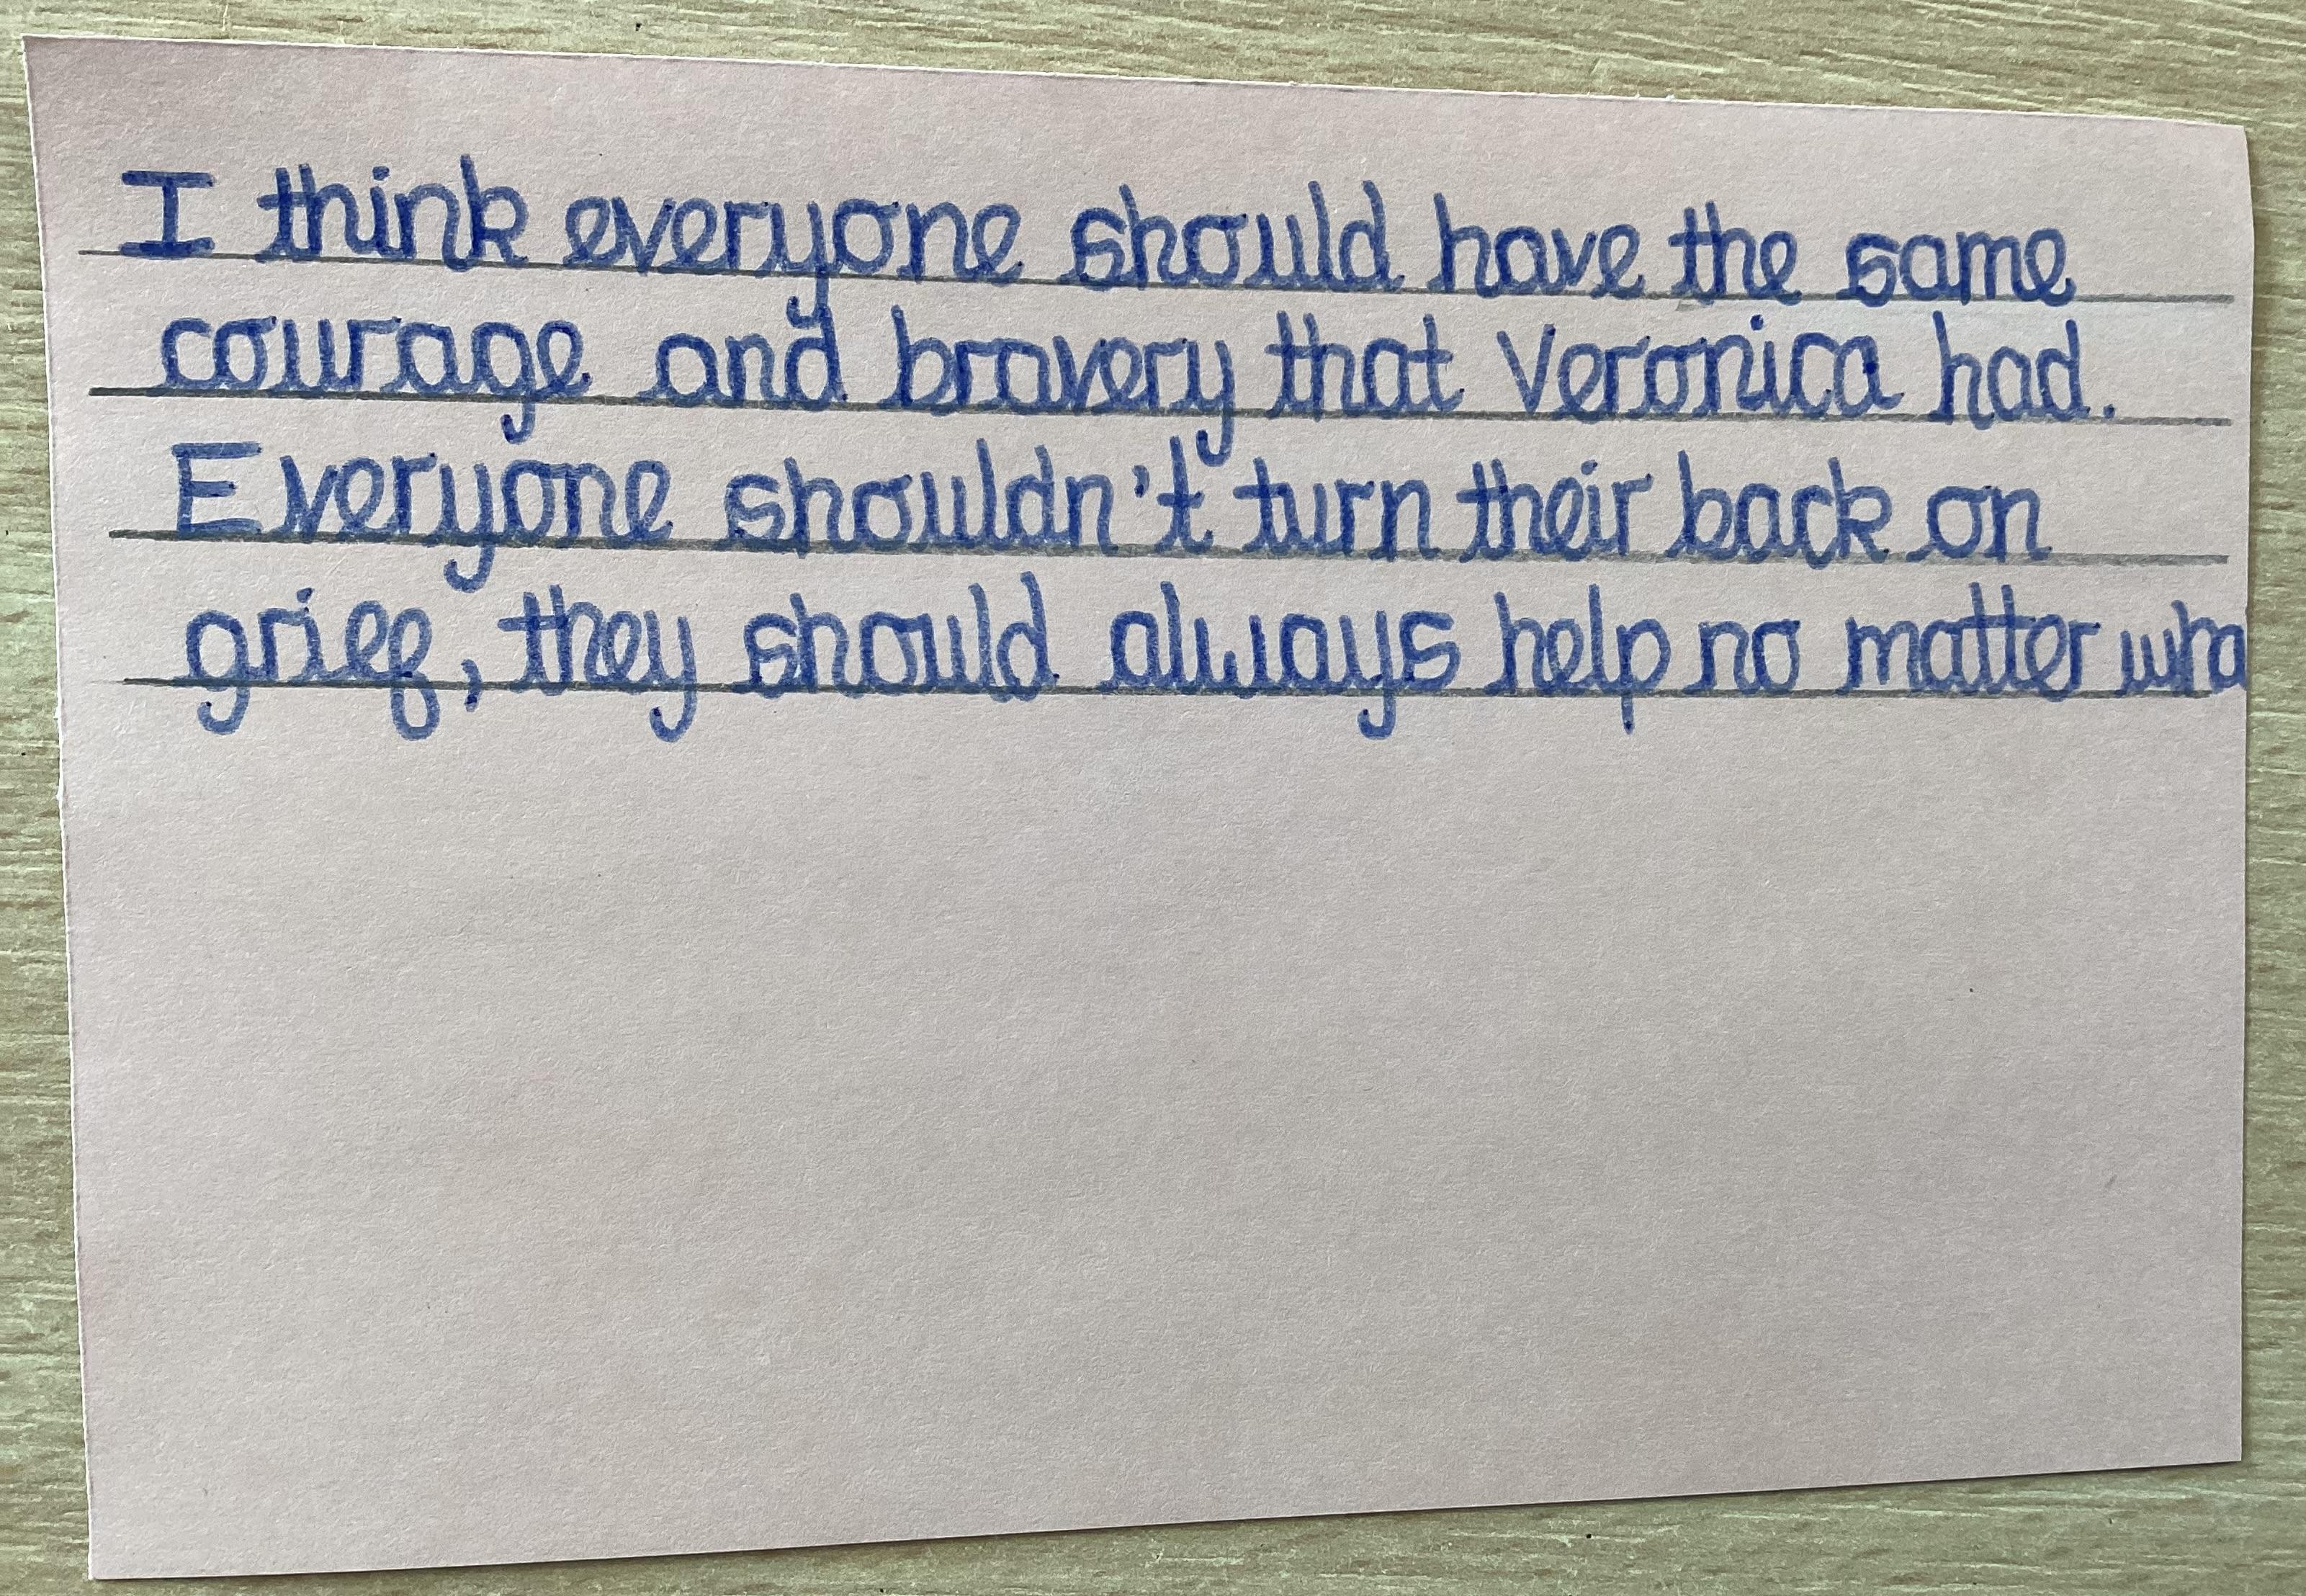 I think everyone should have the same
courage and bravery that Veronica had.
Everyone shouldn't turn their back on
grief, they should always help no matter wha